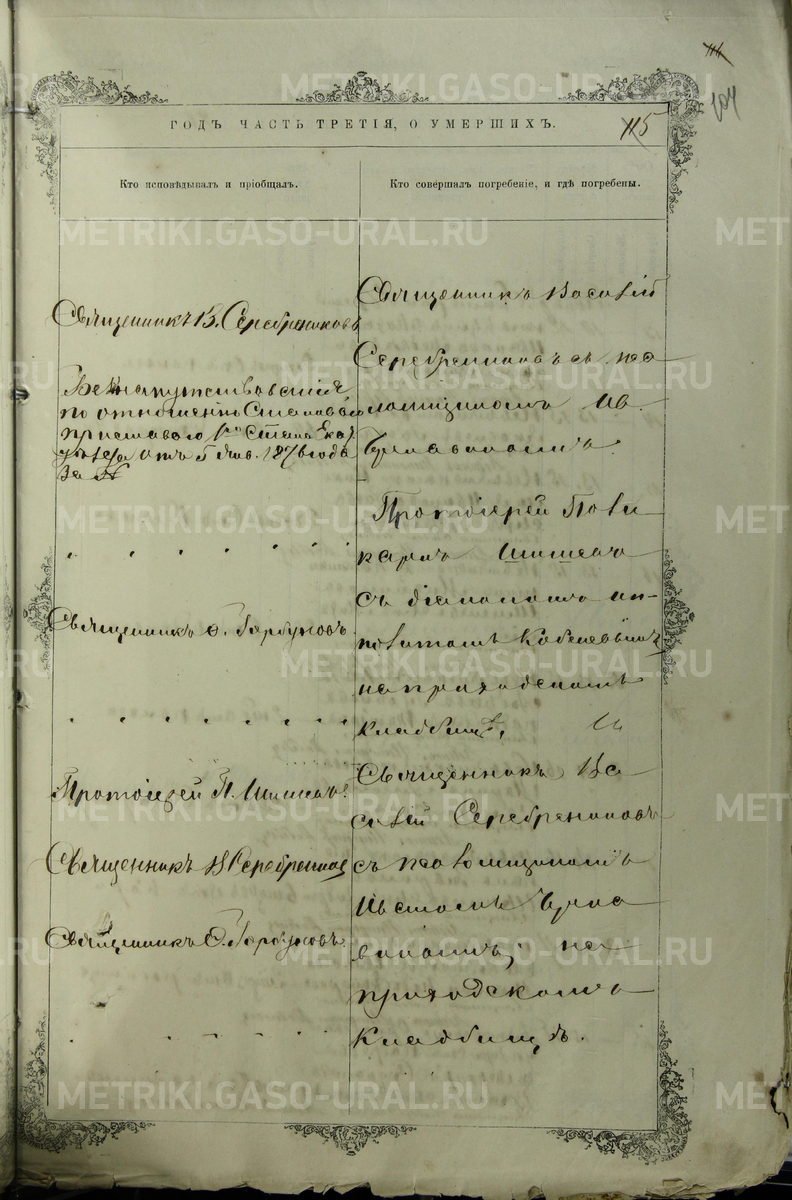 METRIKI.GASO-URAL.RU
114
104
ГОДЪ ЧАСТЬ ТРЕТІЯ, О УМЕРШИХЪ.
115
Кто исповѣдывалъ и пріобщалъ.
Кто совершалъ погребеніе, и гдѣ погребены.
Священникъ В. Серебрениковъ
Безъ напутствованія,
по отношенію Становаго
пристава 1го Стана Екат
отъ 5 Янв. 187 года
За №
Священникъ Ѳ. Горбуновъ.
Протоіерей П. Шишевъ.
Священникъ В Серебреников
Священникъ Ѳ. Горбуновъ
Священникъ Василій
Серебрениковъ съ пса
ломщикомъ Ив.
Протоіерей Поли
карпъ Шишевъ
съ діакономъ Ип
политомъ Кобелевымъ
на приходскомъ
кладбищѣ, и
Священникъ Ва
силій Серебрениковъ
съ псаломщикомъ
на
приходскомъ
Кладбищѣ.